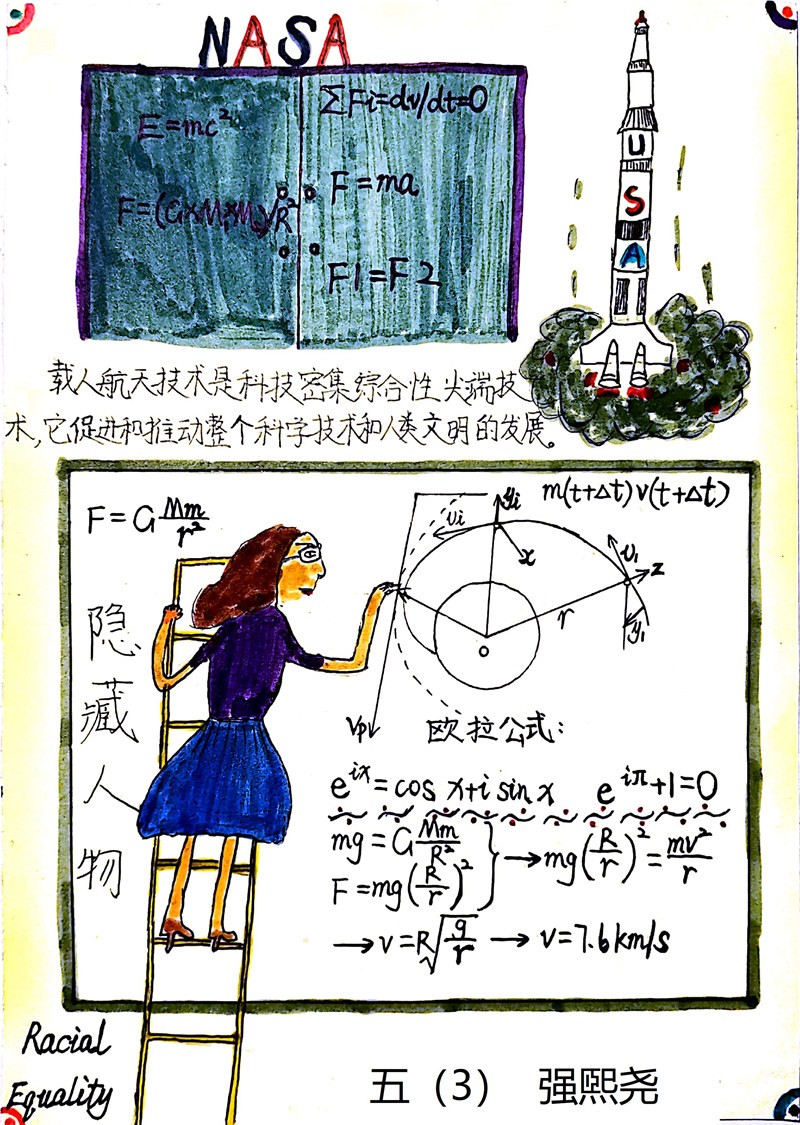 NASA
E=mc²
ΣFi=dv/dt=0
F=ma
F=(G×M₁×M₂)/R²
F1=F2
USA
载人航天技术是科技密集综合性尖端技
术,它促进和推动整个科学技术和人类文明的发展。
F=G Mm/r²
m(t+Δt)v(t+Δt)
yi
vi
x
v₁
z
r
y₁
o
Vp
隐藏人物
欧拉公式:
e^ix=cos x+i sin x e^iπ+1=0
mg=G Mm/R²
F=mg(R/r)²
→mg(R/r)²=mv²/r
→v=R√g/r →v=7.6km/s
Racial
Equality
五（3） 强熙尧